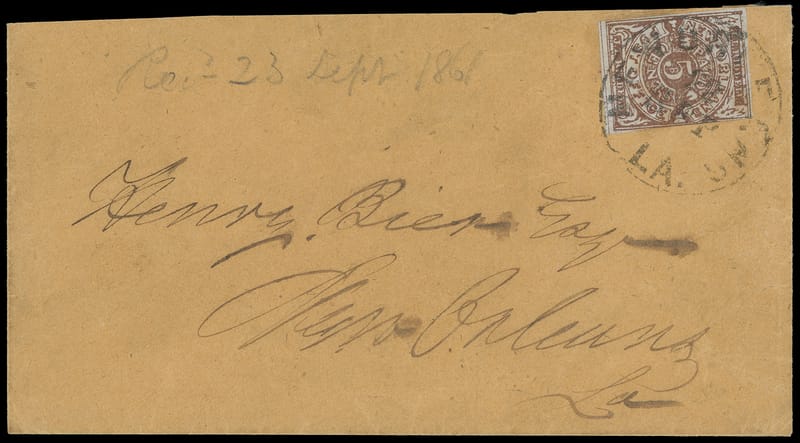 Rec'd 23 Sept 1861
5
LA.
Henry Bier Esq
New Orleans
La